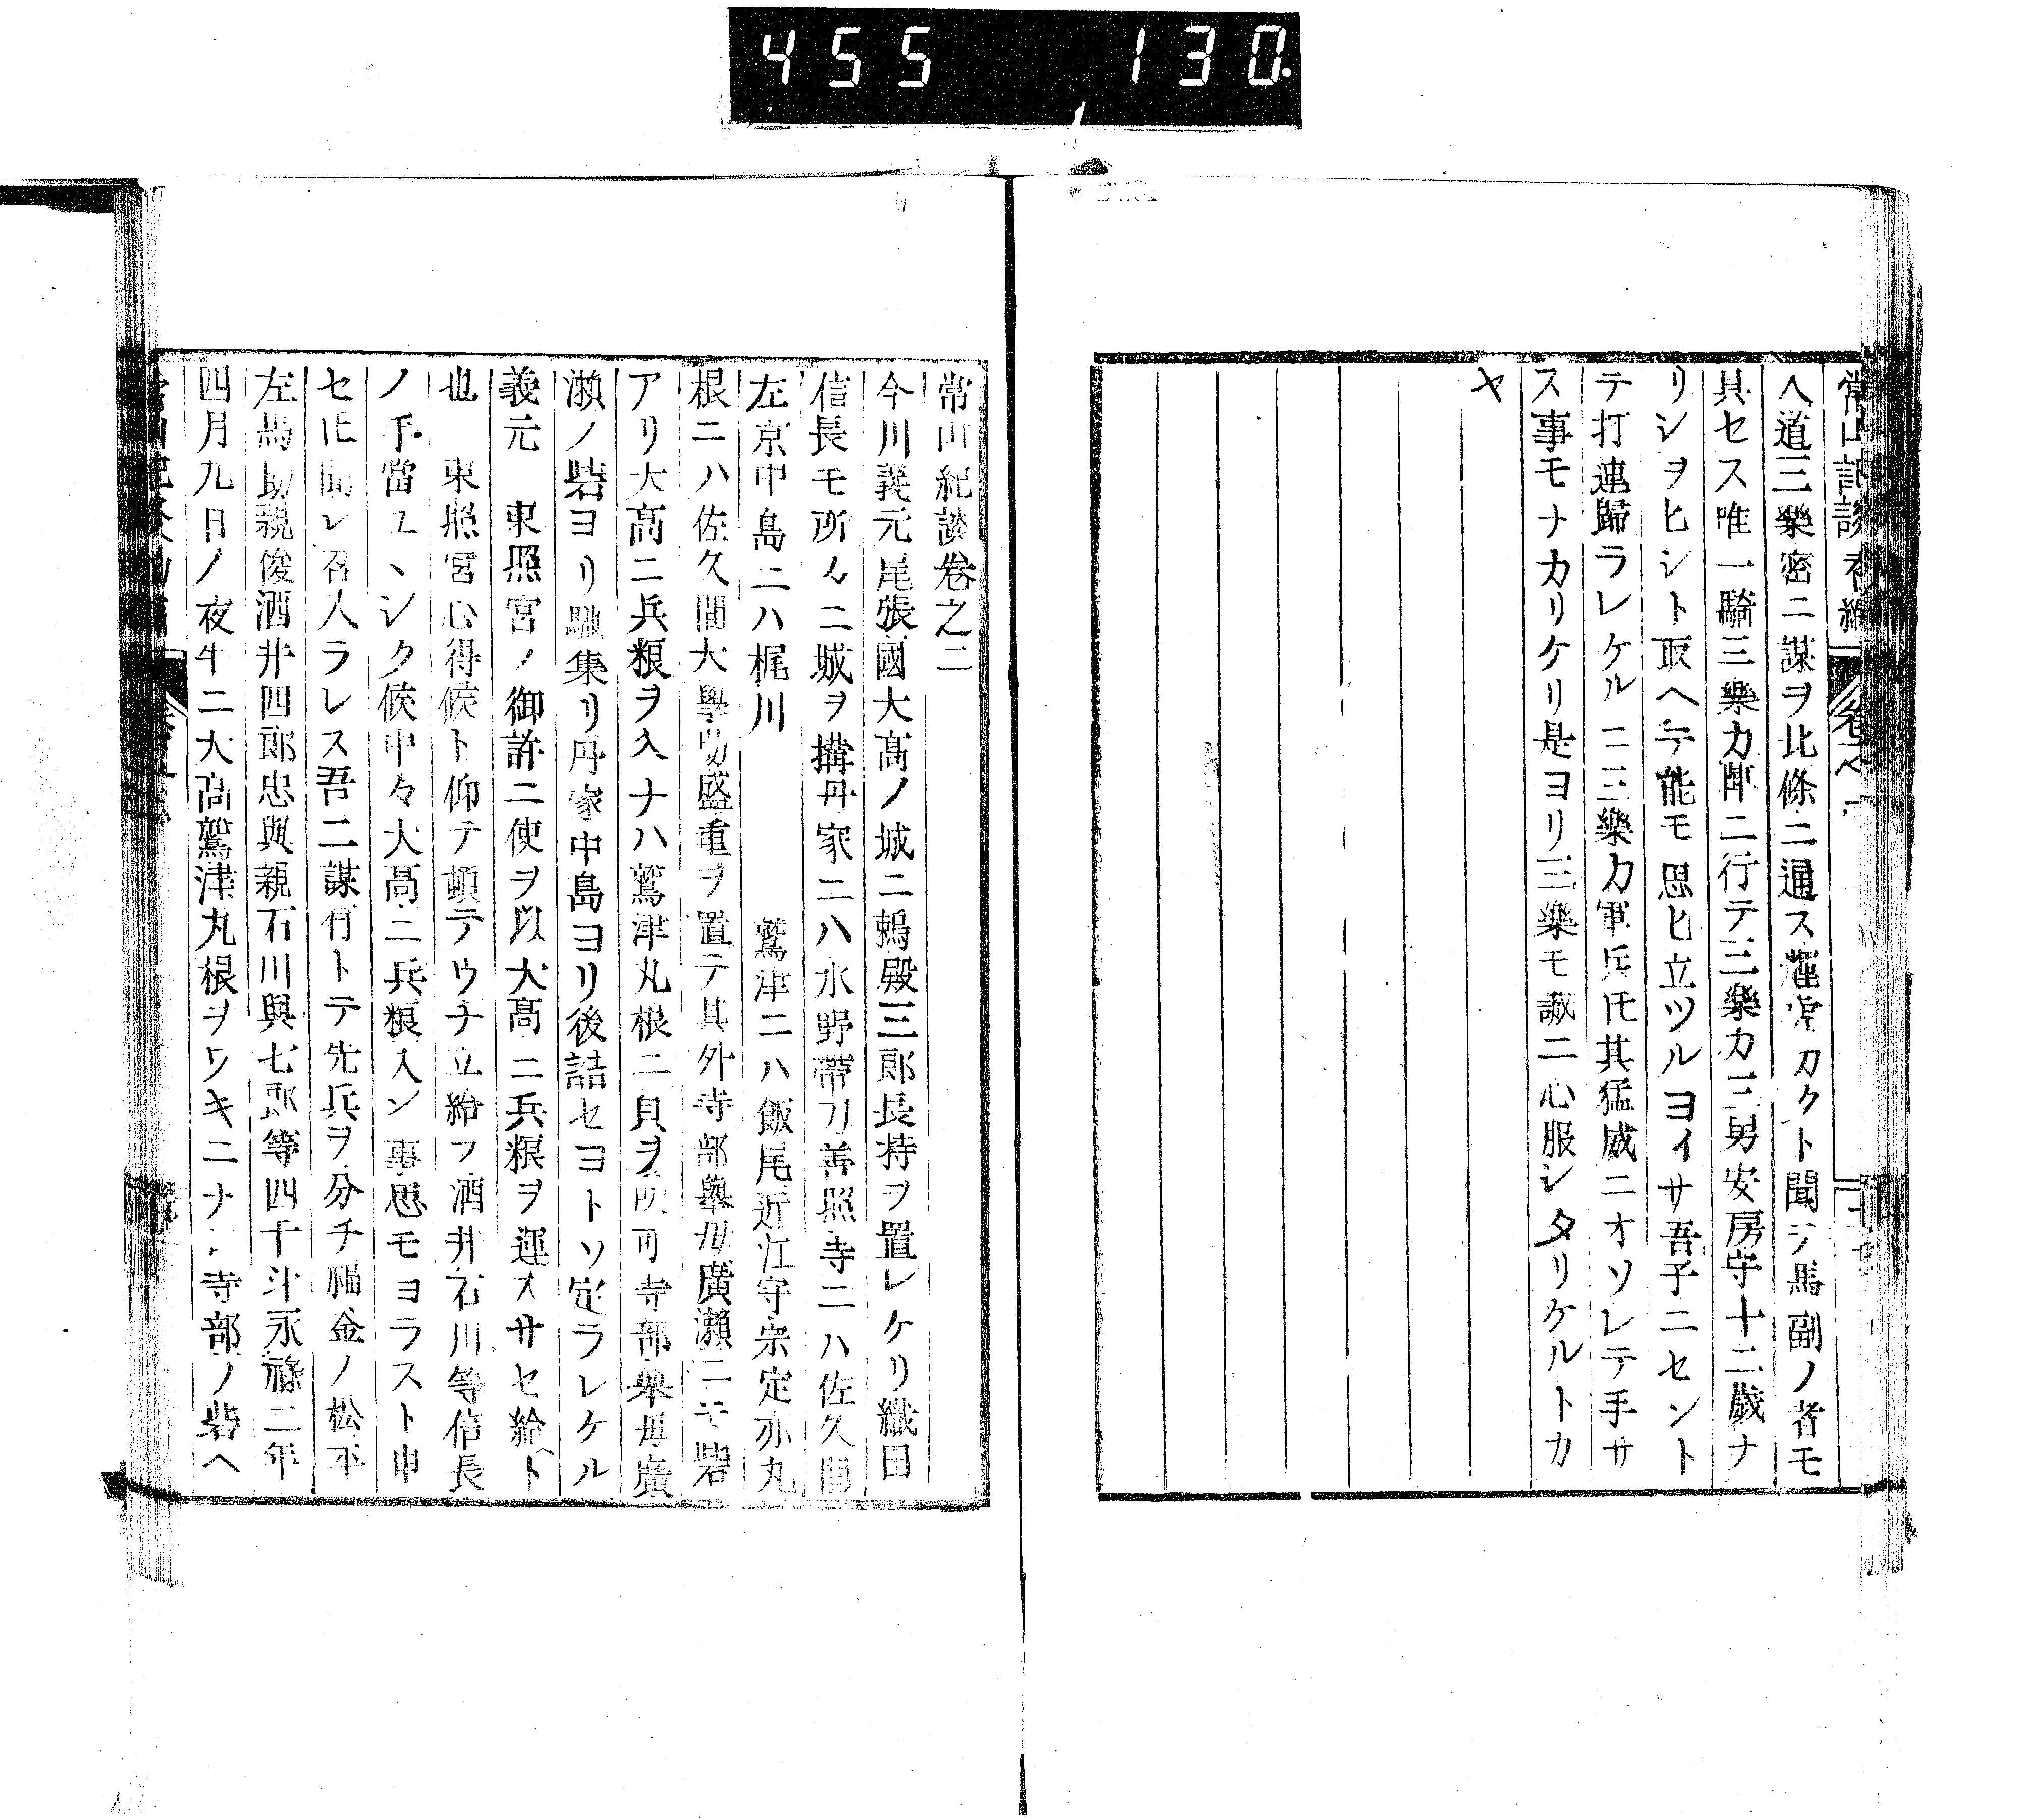 455 130
入道三樂密ニ謀ヲ北條ニ通ス輝虎カクト聞テ馬副ノ者モ
具セス唯一騎三樂カ陣ニ行テ三樂カ三男安房守十二歳ナ
リシヲヒシト取ヘテ能モ思ヒ立ツルヨイサ吾子ニセント
テ打連歸ラレケルニ三樂カ軍兵𪜈其猛威ニオソレテ手サ
ス事モナカリケリ是ヨリ三樂モ誠ニ心服シタリケルトカ
ヤ
常山紀談卷之二
今川義元尾張國大髙ノ城ニ鵜殿三郎長持ヲ置レケリ織田
信長モ所々ニ城ヲ搆丹家ニハ水野帶刀善照寺ニハ佐久間
左京中島ニハ梶川 鷲津ニハ飯尾近江守宗定亦丸
根ニハ佐久間大學助盛重ヲ置テ其外寺部擧母廣瀬ニモ砦
アリ大髙ニ兵粮ヲ入ナハ鷲津丸根ニ貝ヲ吹可寺部擧母廣
瀬ノ砦ヨリ馳集リ丹家中島ヨリ後詰セヨトソ定ラレケル
義元 東照宮ノ御許ニ使ヲ以大髙ニ兵粮ヲ運ハサセ給ト
也 東照宮心得候ト仰テ頓テウチ立給フ酒井石川等信長
ノ手當ユヽシク候中々大髙ニ兵粮入ン事思モヨラスト申
セ𪜈聞レ召入ラレス吾ニ謀有トテ先兵ヲ分チ福釜ノ松平
左馬助親俊酒井四郎忠與親石川與七郎等四千斗永祿二年
四月九日ノ夜半ニ大髙鷲津丸根ヲワキニナシ寺部ノ砦ヘ